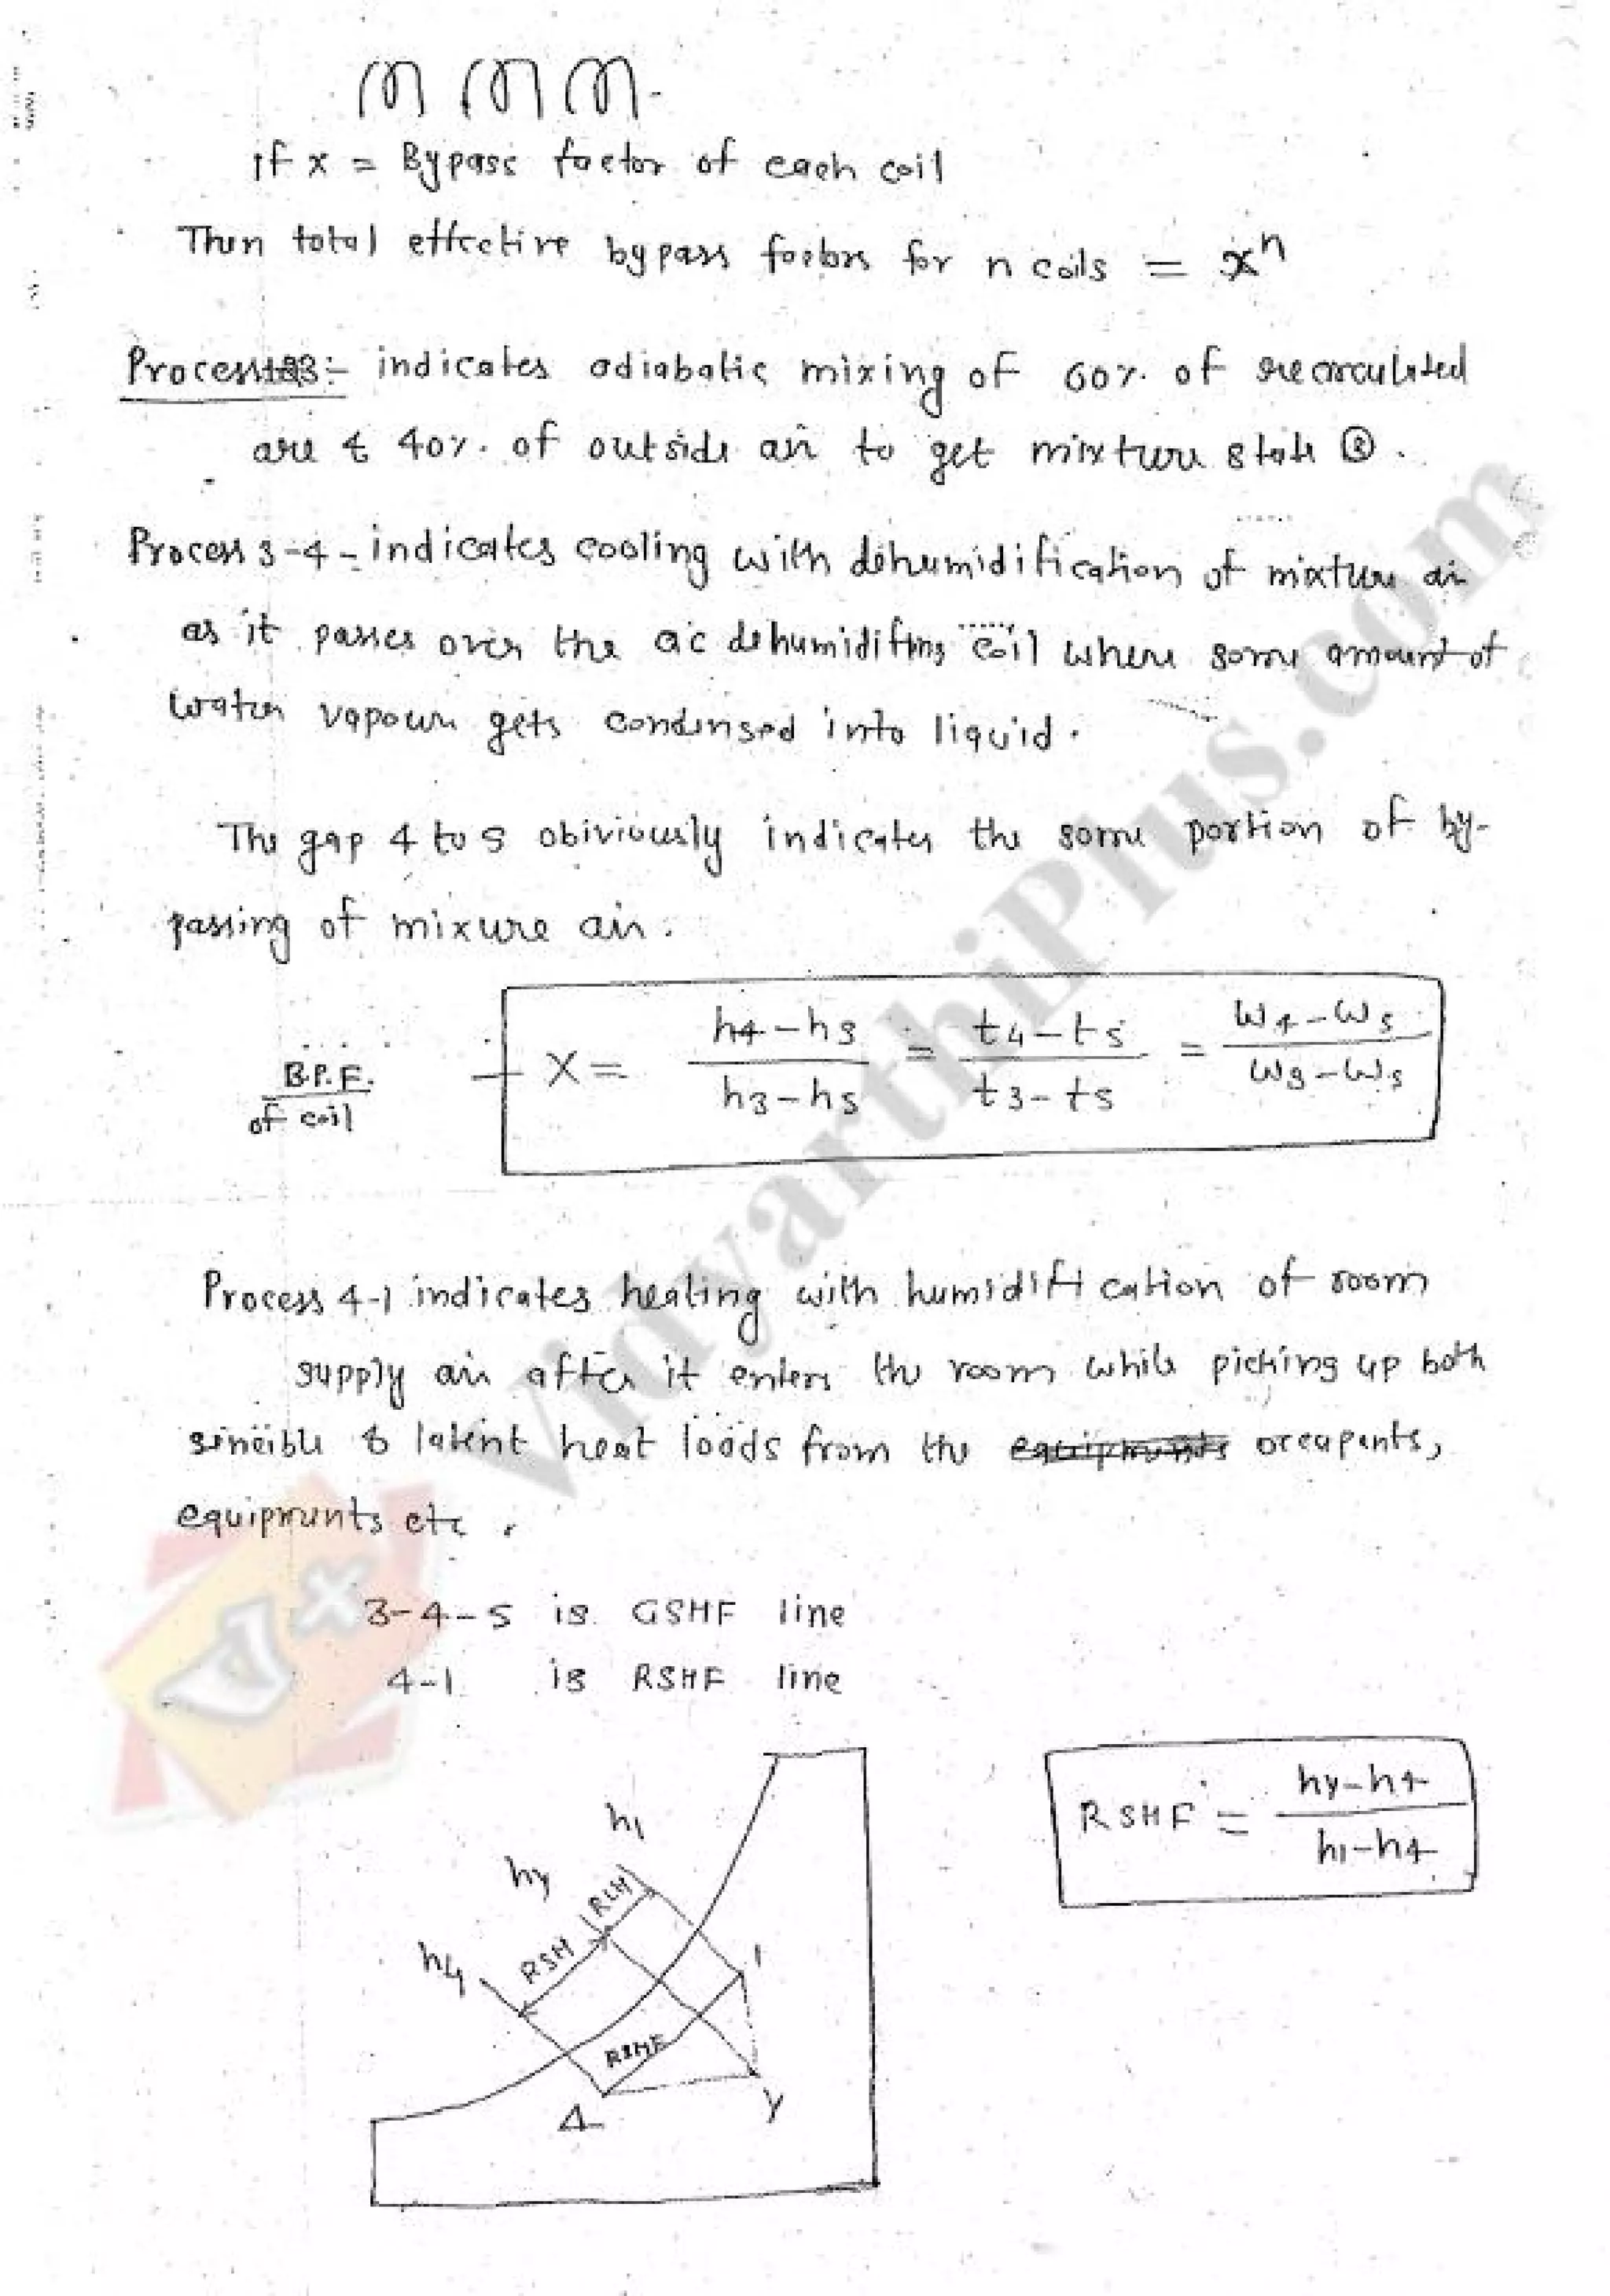 If x = Bypass factor of each coil
Then total effective bypass factors for n coils = xⁿ
Process :- indicates adiabatic mixing of 60% of recirculated
are & 40% of outside air to get mixture state ③.
Process 3-4 - indicates cooling with dehumidification of mixture air
as it passes over the ac dehumidifing coil where some amount of
water vapour gets condensed into liquid.
The gap 4 to s obiviously indicates the some portion of by-
passing of mixure air.
B.P.F. of coil → X = (h4-hs)/(h3-hs) = (t4-ts)/(t3-ts) = (ω4-ωs)/(ω3-ωs)
Process 4-1 indicates heating with humidification of room
supply air after it enters the room while picking up both
sencible & latent heat loads from the occupents,
equipments etc.
3-4-s is GSHF line
4-1 is RSHF line
RSHF = (hy-h4)/(h1-h4)
h1
hy
RLH
h4
RSH
1
RSHF
4
y
VidyarthiPlus.com
V+